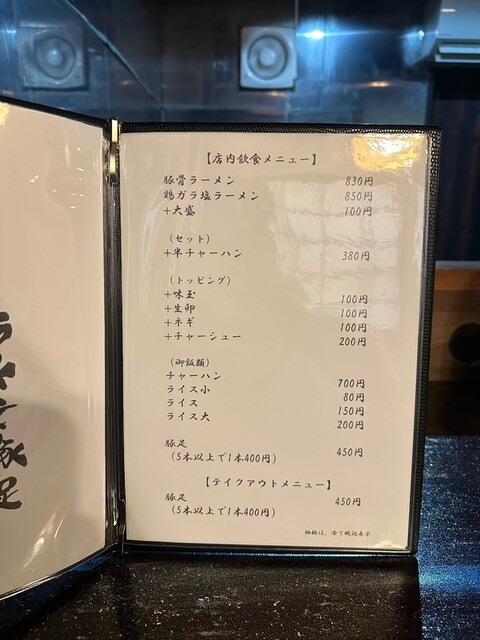 【店内飲食メニュー】
豚骨ラーメン 830円
鶏ガラ塩ラーメン 850円
+大盛 100円
(セット)
+半チャーハン 380円
(トッピング)
+味玉 100円
+生卵 100円
+ネギ 100円
+チャーシュー 200円
(御飯類)
チャーハン 700円
ライス小 80円
ライス 150円
ライス大 200円
豚足 450円
(5本以上で1本400円)
【テイクアウトメニュー】
豚足 450円
(5本以上で1本400円)
価格は、全て税込表示
豚足